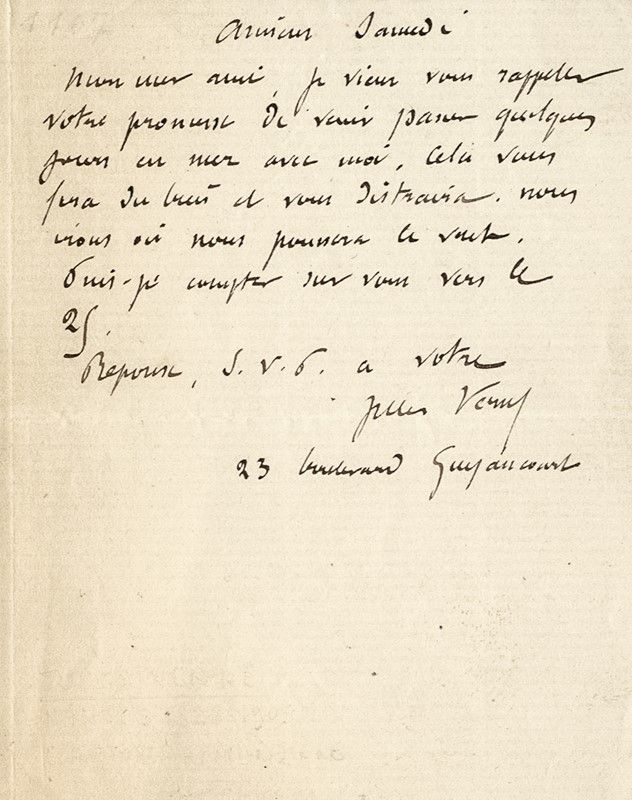 Amiens Samedi
Mon cher ami, Je viens vous rappeler
votre promesse de venir passer quelques
jours en mer avec moi, Cela vous
fera du bien et vous distraira. nous
irons où nous poussera le vent.
Puis-je compter sur vous vers le
25.
Réponse, S.V.P. a votre
Jules Verne
23 boulevard Guyancourt